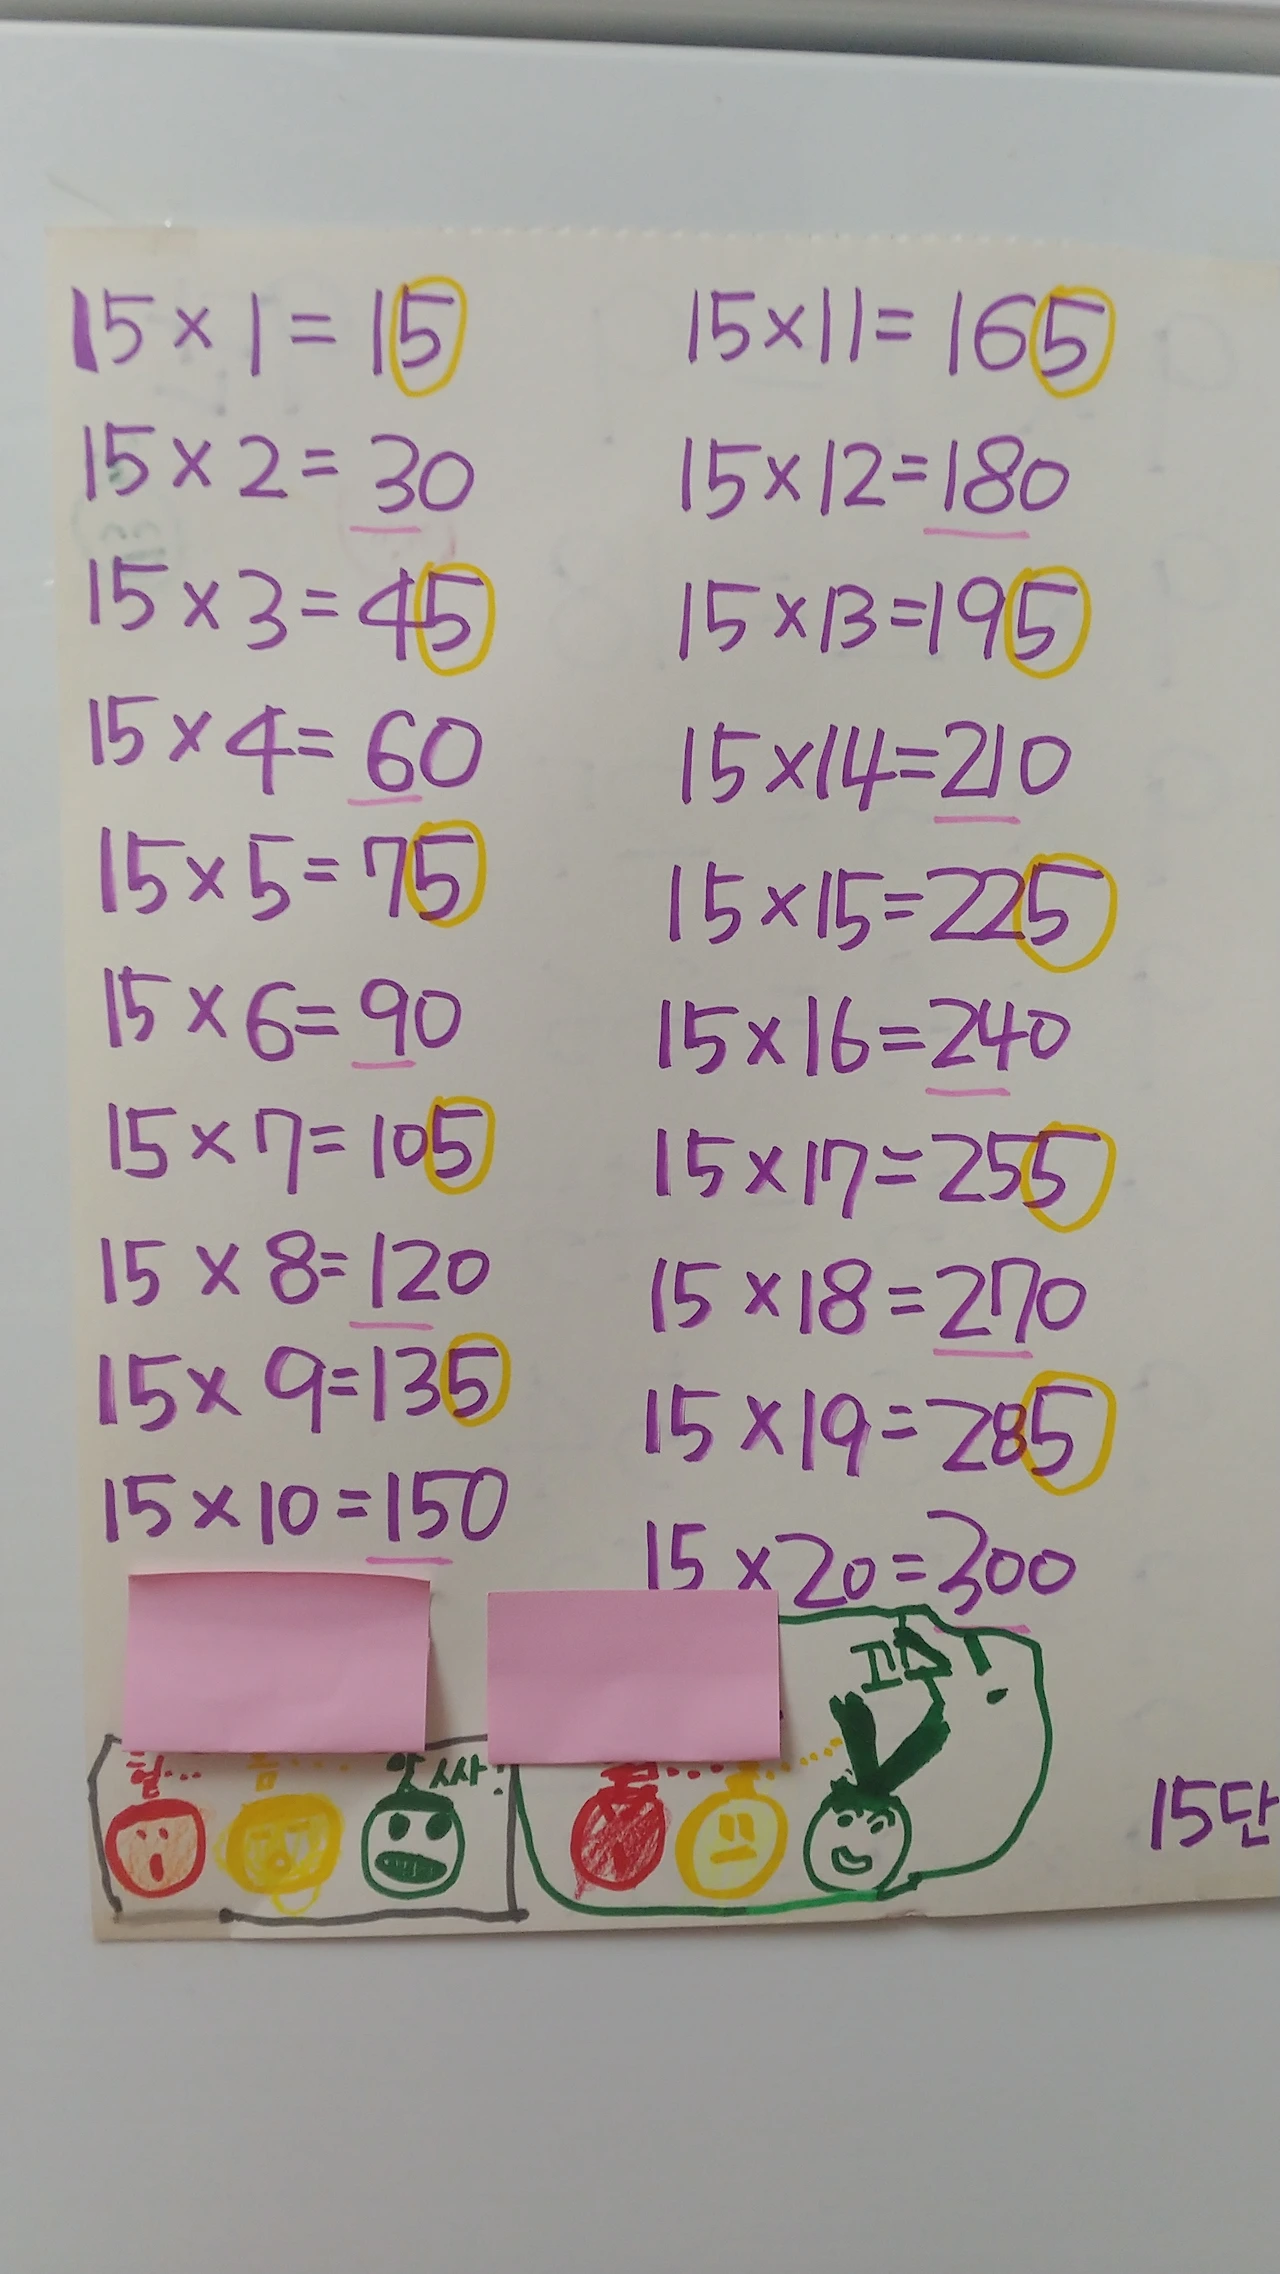 15 × 1 = 15
15 × 2 = 30
15 × 3 = 45
15 × 4 = 60
15 × 5 = 75
15 × 6 = 90
15 × 7 = 105
15 × 8 = 120
15 × 9 = 135
15 × 10 = 150
15 × 11 = 165
15 × 12 = 180
15 × 13 = 195
15 × 14 = 210
15 × 15 = 225
15 × 16 = 240
15 × 17 = 255
15 × 18 = 270
15 × 19 = 285
15 × 20 = 300
헐... 흠... 앗싸!
15단